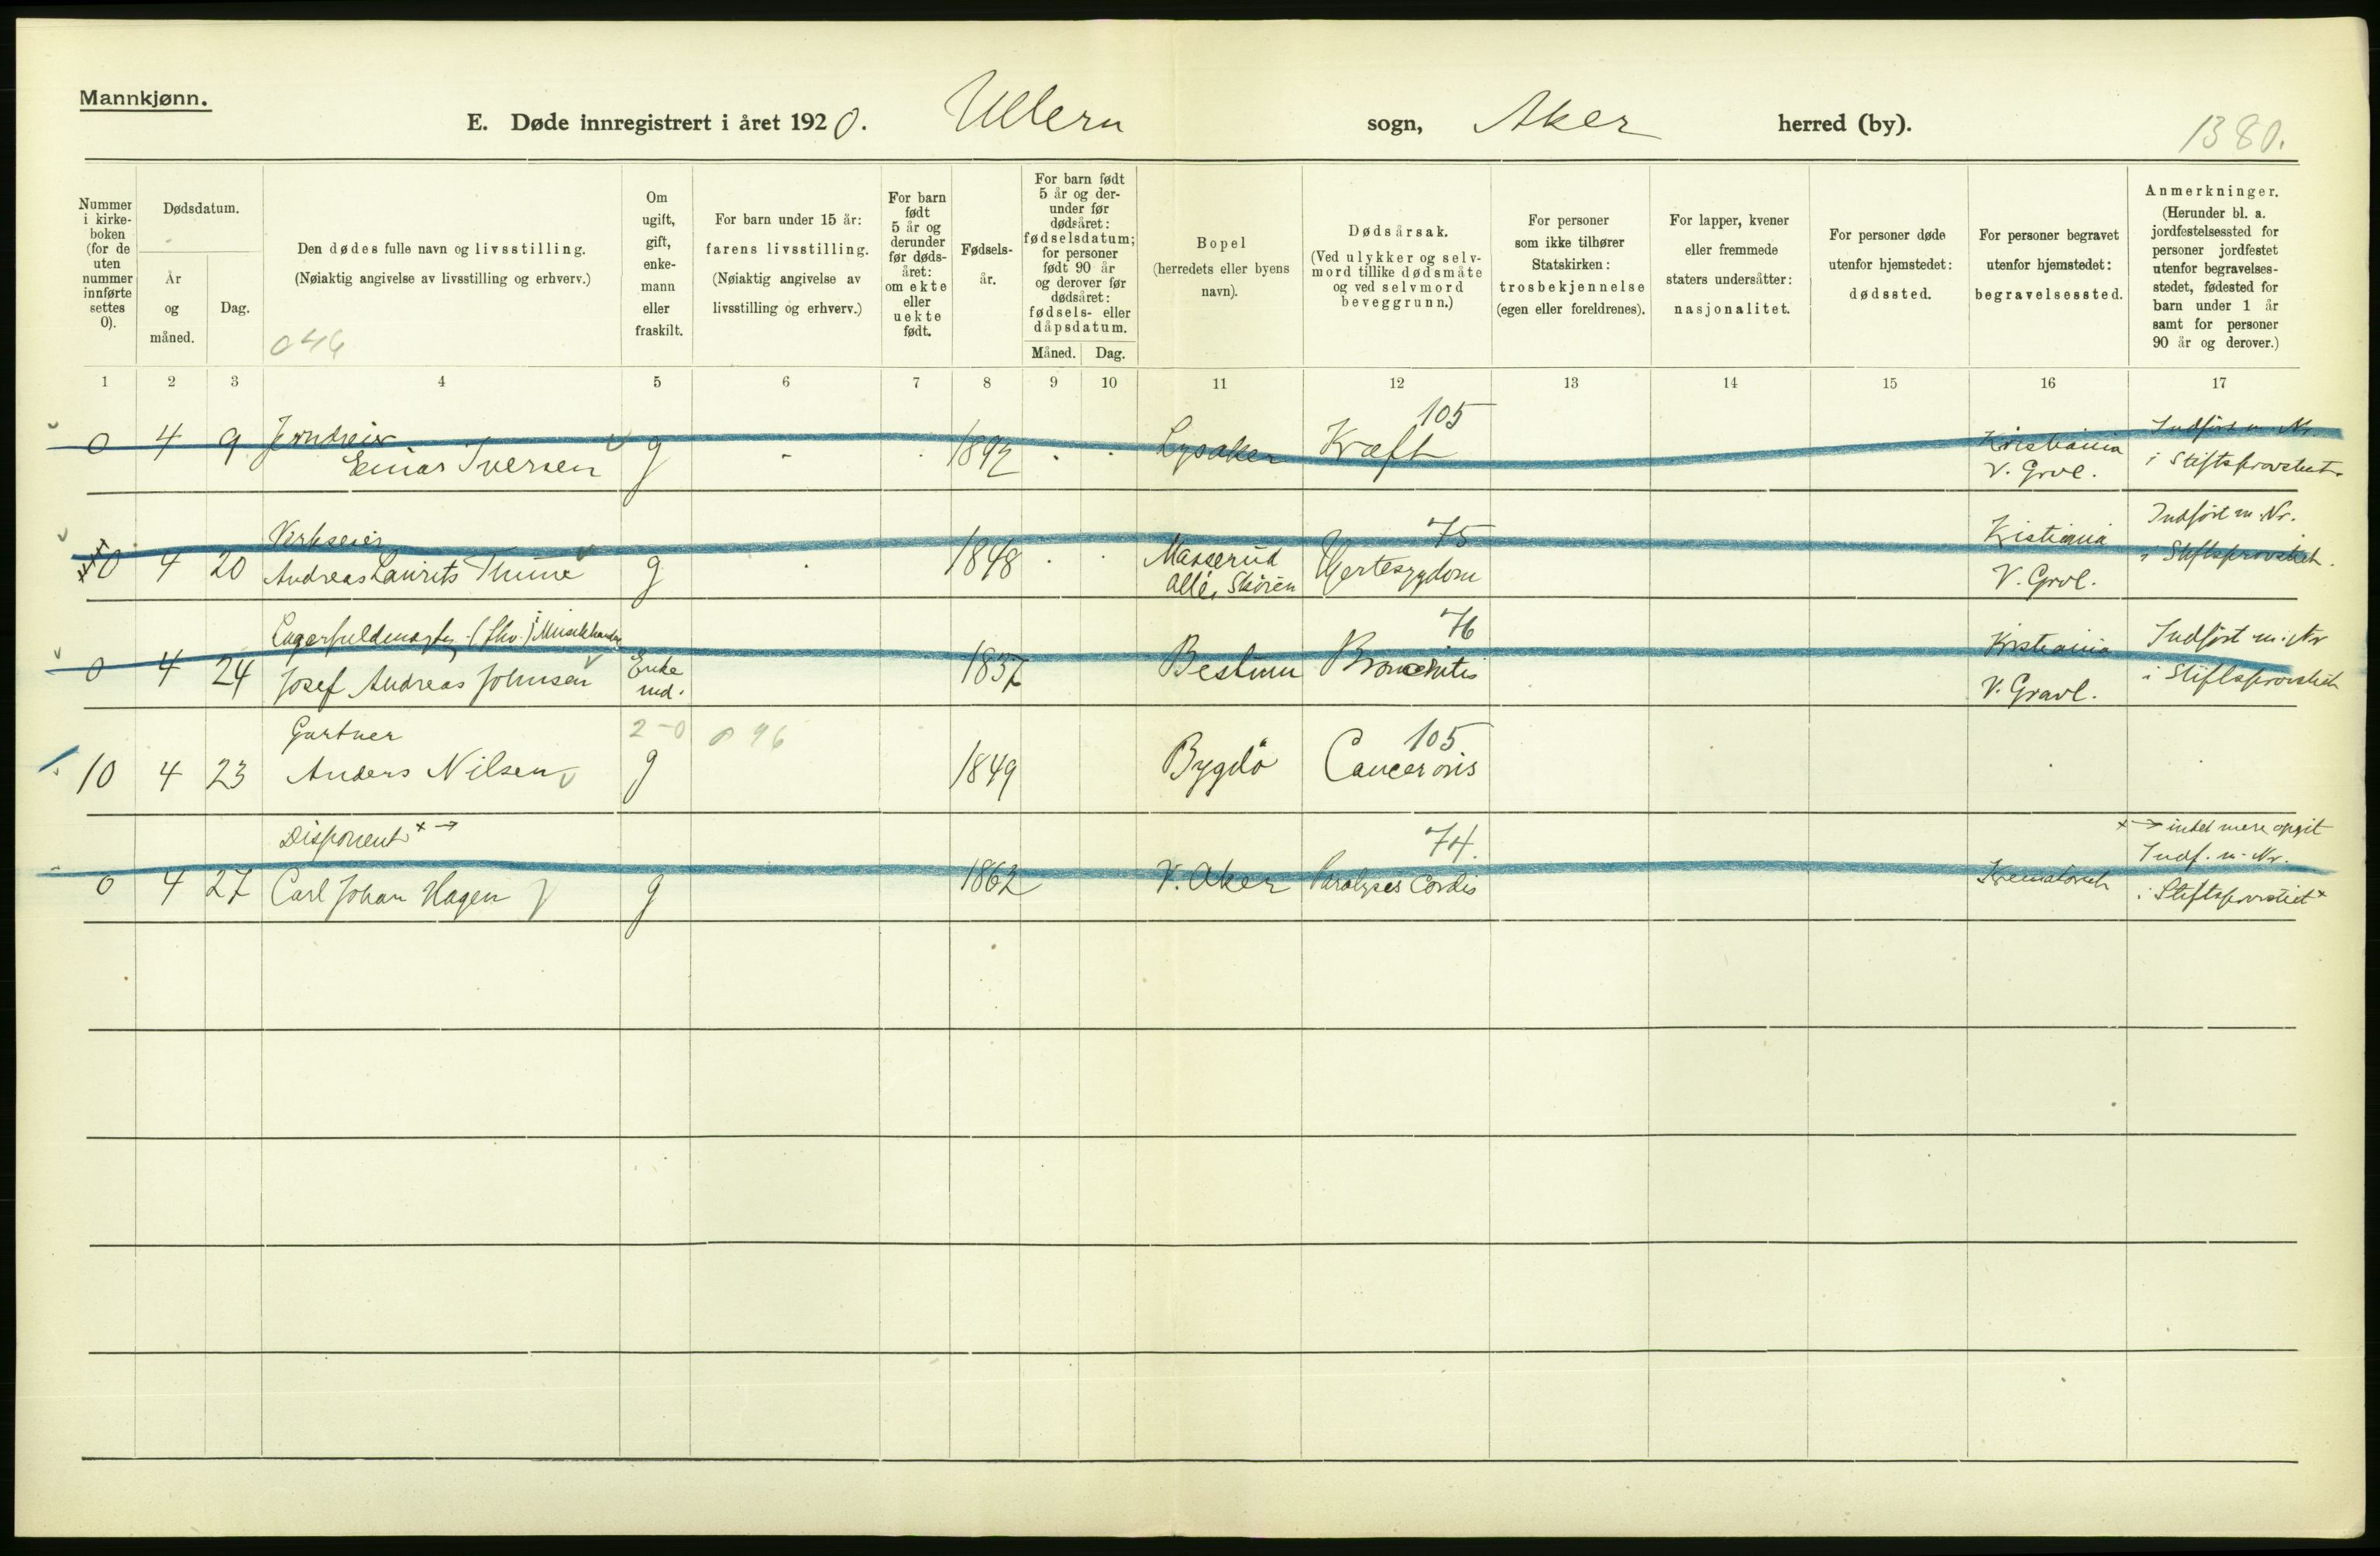 Mannkjønn.
E. Døde innregistrert i året 1920. Ullern sogn, Aker herred (by).
1380.
Nummer i kirke-boken (for de uten nummer innførte settes 0).
Dødsdatum.
År og måned.
Dag.
Den dødes fulle navn og livsstilling.
(Nøiaktig angivelse av livsstilling og erhverv.)
Om ugift, gift, enke-mann eller fraskilt.
For barn under 15 år: farens livsstilling. (Nøiaktig angivelse av livsstilling og erhverv.)
For barn født 5 år og derunder før døds-året: om ekte eller uekte født.
Fødsels-år.
For barn født 5 år og der-under før dødsåret: fødselsdatum; for personer født 90 år og derover før dødsåret: fødsels- eller dåpsdatum.
Måned. Dag.
Bopel (herredets eller byens navn).
Dødsårsak. (Ved ulykker og selv-mord tillike dødsmåte og ved selvmord beveggrunn.)
For personer som ikke tilhører Statskirken: trosbekjennelse (egen eller foreldrenes).
For lapper, kvener eller fremmede staters undersåtter: nasjonalitet.
For personer døde utenfor hjemstedet: dødssted.
For personer begravet utenfor hjemstedet: begravelsessted.
Anmerkninger. (Herunder bl. a. jordfestelsessted for personer jordfestet utenfor begravelses-stedet, fødested for barn under 1 år samt for personer 90 år og derover.)
1 2 3 4 5 6 7 8 9 10 11 12 13 14 15 16 17
105
0 4 9 Einar Iversen g - 1892 Lysaker Kræft Kristiania V. Grvl. Indført m. Nr. i Stiftsprovstiet.
Verkseier 75
0 4 20 Andreas Laurits Thune g 1848 Masserud Allé, Skøien Hjertesygdom Kristiania V. Grvl. Indført m. Nr. i Stiftsprovstiet.
Lagerfuldmægtig (fhv.) Musikhandler 76
0 4 24 Josef Andreas Johnsen Enkemd. 1837 Bestum Bronchitis Kristiania V. Gravl. Indført m. Nr i Stiftsprovstiet
Gartner 2-0 105
10 4 23 Anders Nilsen g 1849 Bygdø Cancer oris
Disponent x → 74.
0 4 27 Carl Johan Hagen g 1862 V. Aker Paralyses Cordis Krematoriet x → intet mere opgit Indf. m. Nr. i Stiftsprovstiet x